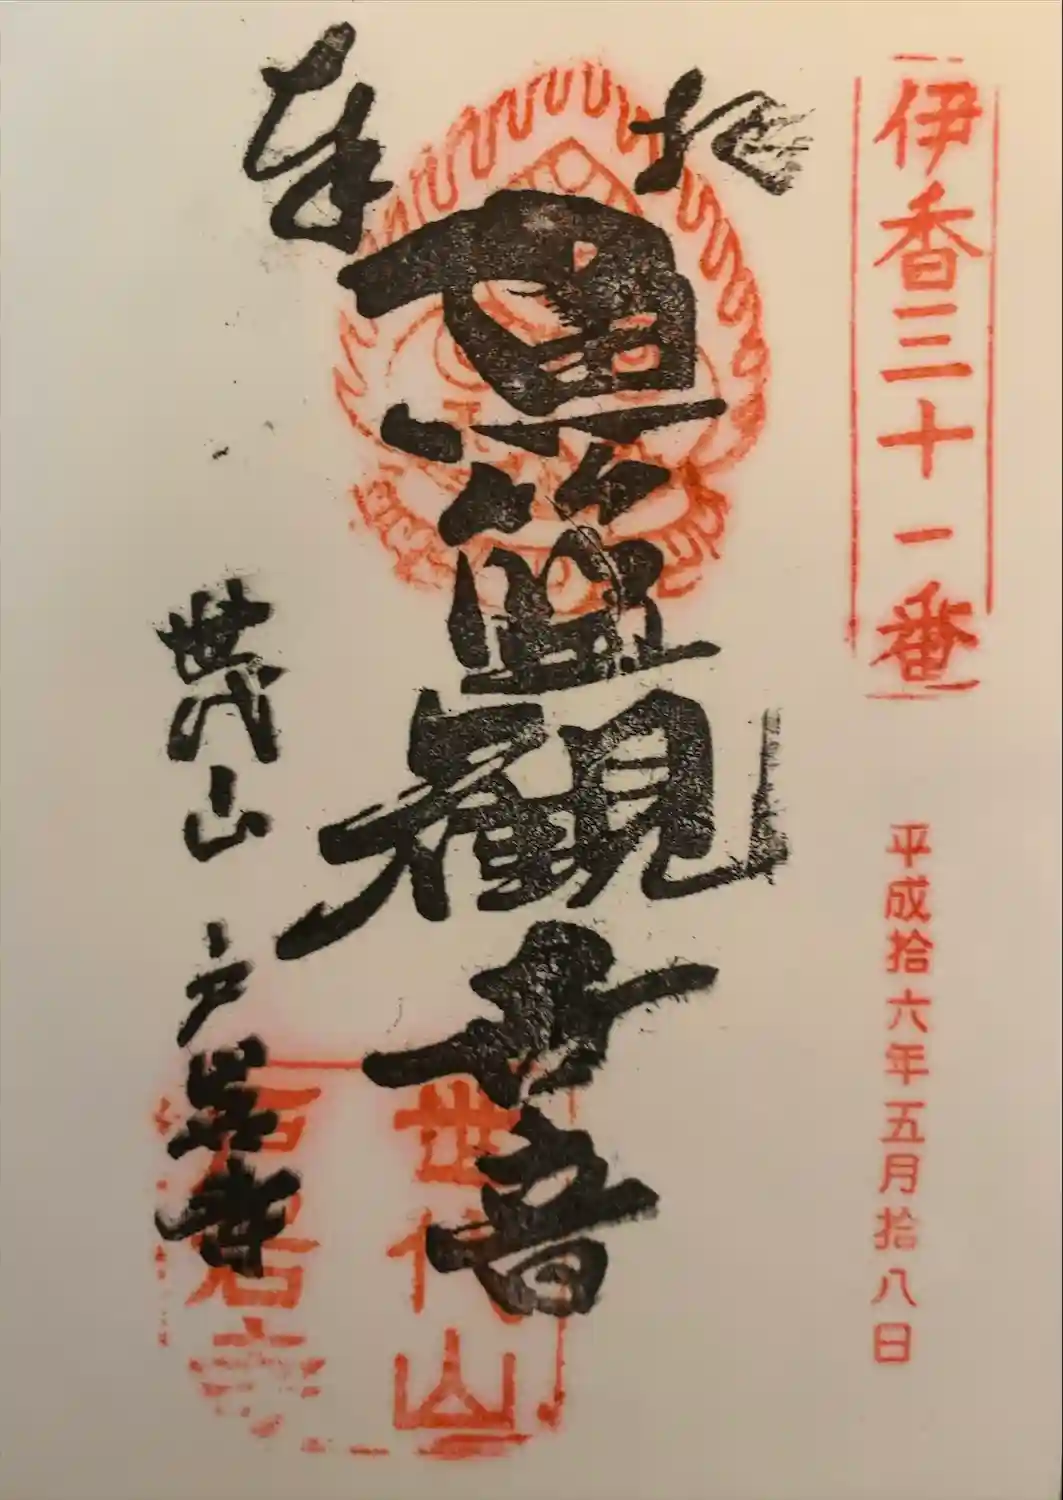 伊香三十一番
平成拾六年五月拾八日
奉
魚籃観世音
世代山 戸岩寺
世代山
戸岩寺